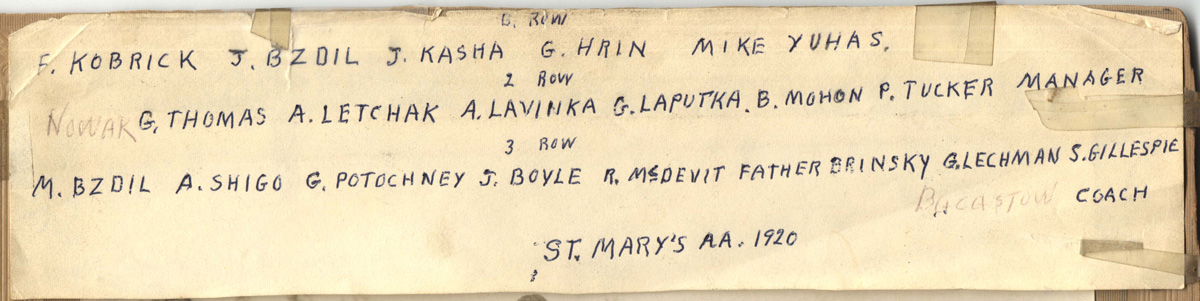 B. ROW
F. KOBRICK J. BZDIL J. KASHA G. HRIN MIKE YUHAS.
2 ROW
NOWAK G. THOMAS A. LETCHAK A. LAVINKA G. LAPUTKA. B. MOHON P. TUCKER MANAGER
3 ROW
M. BZDIL A. SHIGO G. POTOCHNEY J. BOYLE R. McDEVIT FATHER BRINSKY G. LECHMAN S. GILLESPIE
BACASTOW COACH
ST. MARY'S AA. 1920